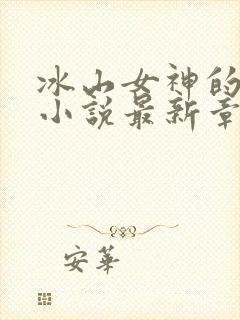 冰山女神的
小説最新章
安華